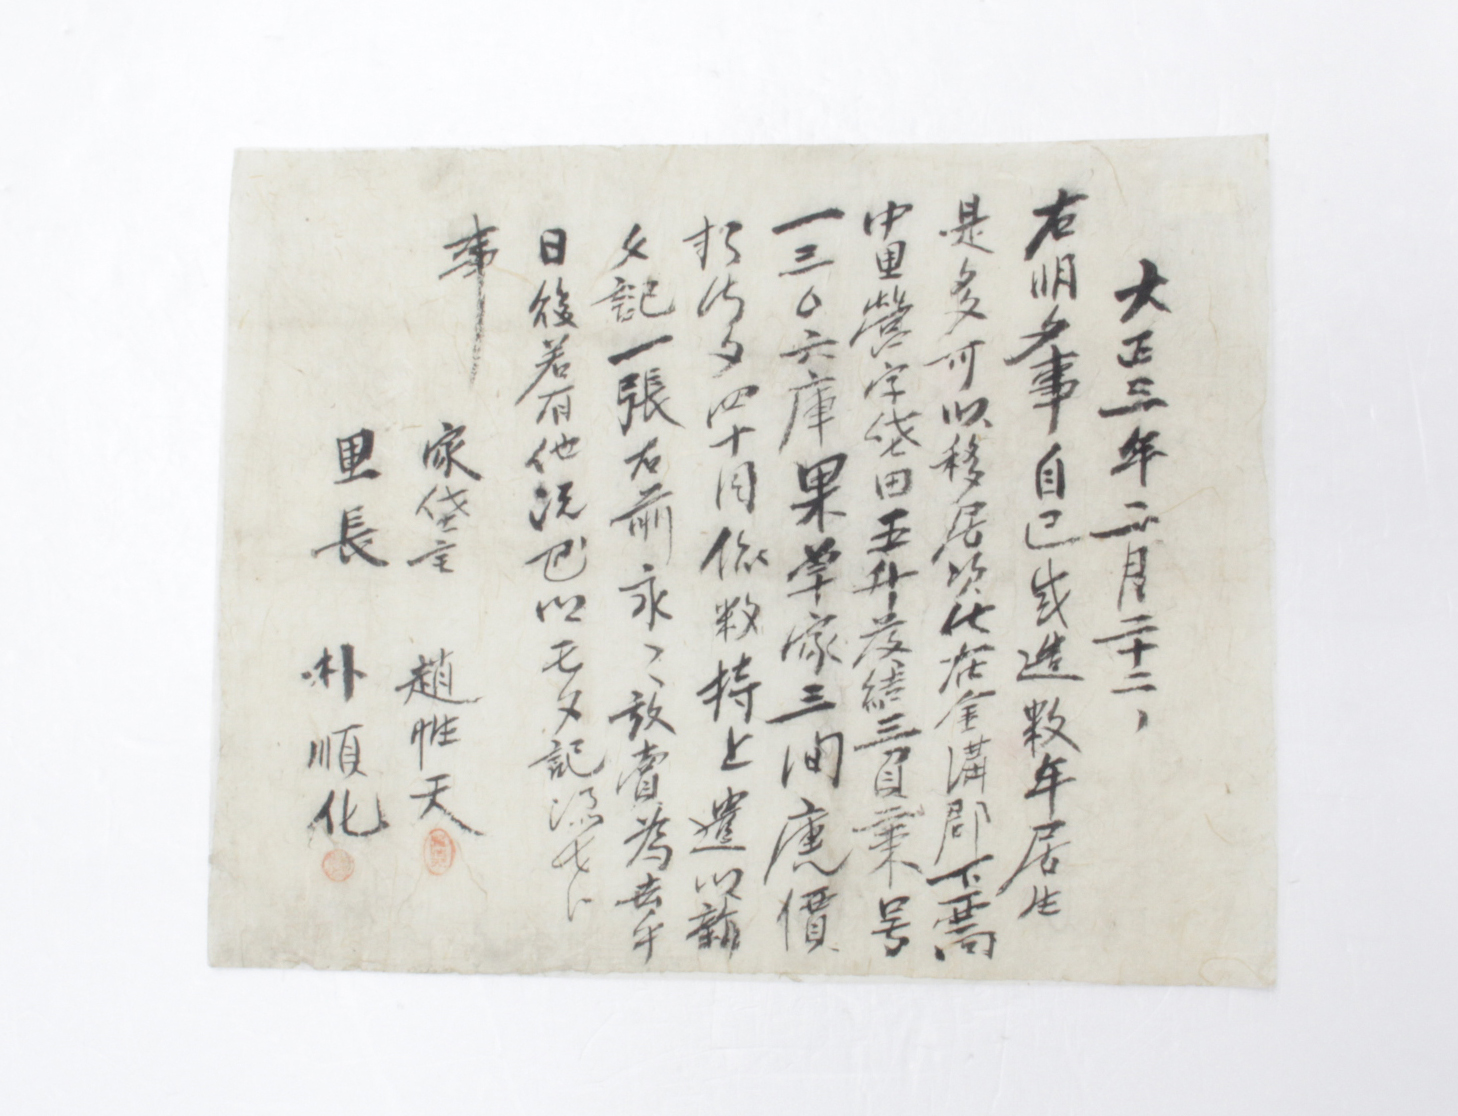 大正三年二月二十二日
右明文事自己造數年居生
是多可以移居次在金溝郡下
中里營字垈田五升落結三負果号
一三〇六庫果草家三間庫價
折錢文四十円依數捧上遣以新
文記一張右前永〻放賣為去乎
日後若有他況以此文記憑考
事
家垈主 趙惟天
里長 朴順化